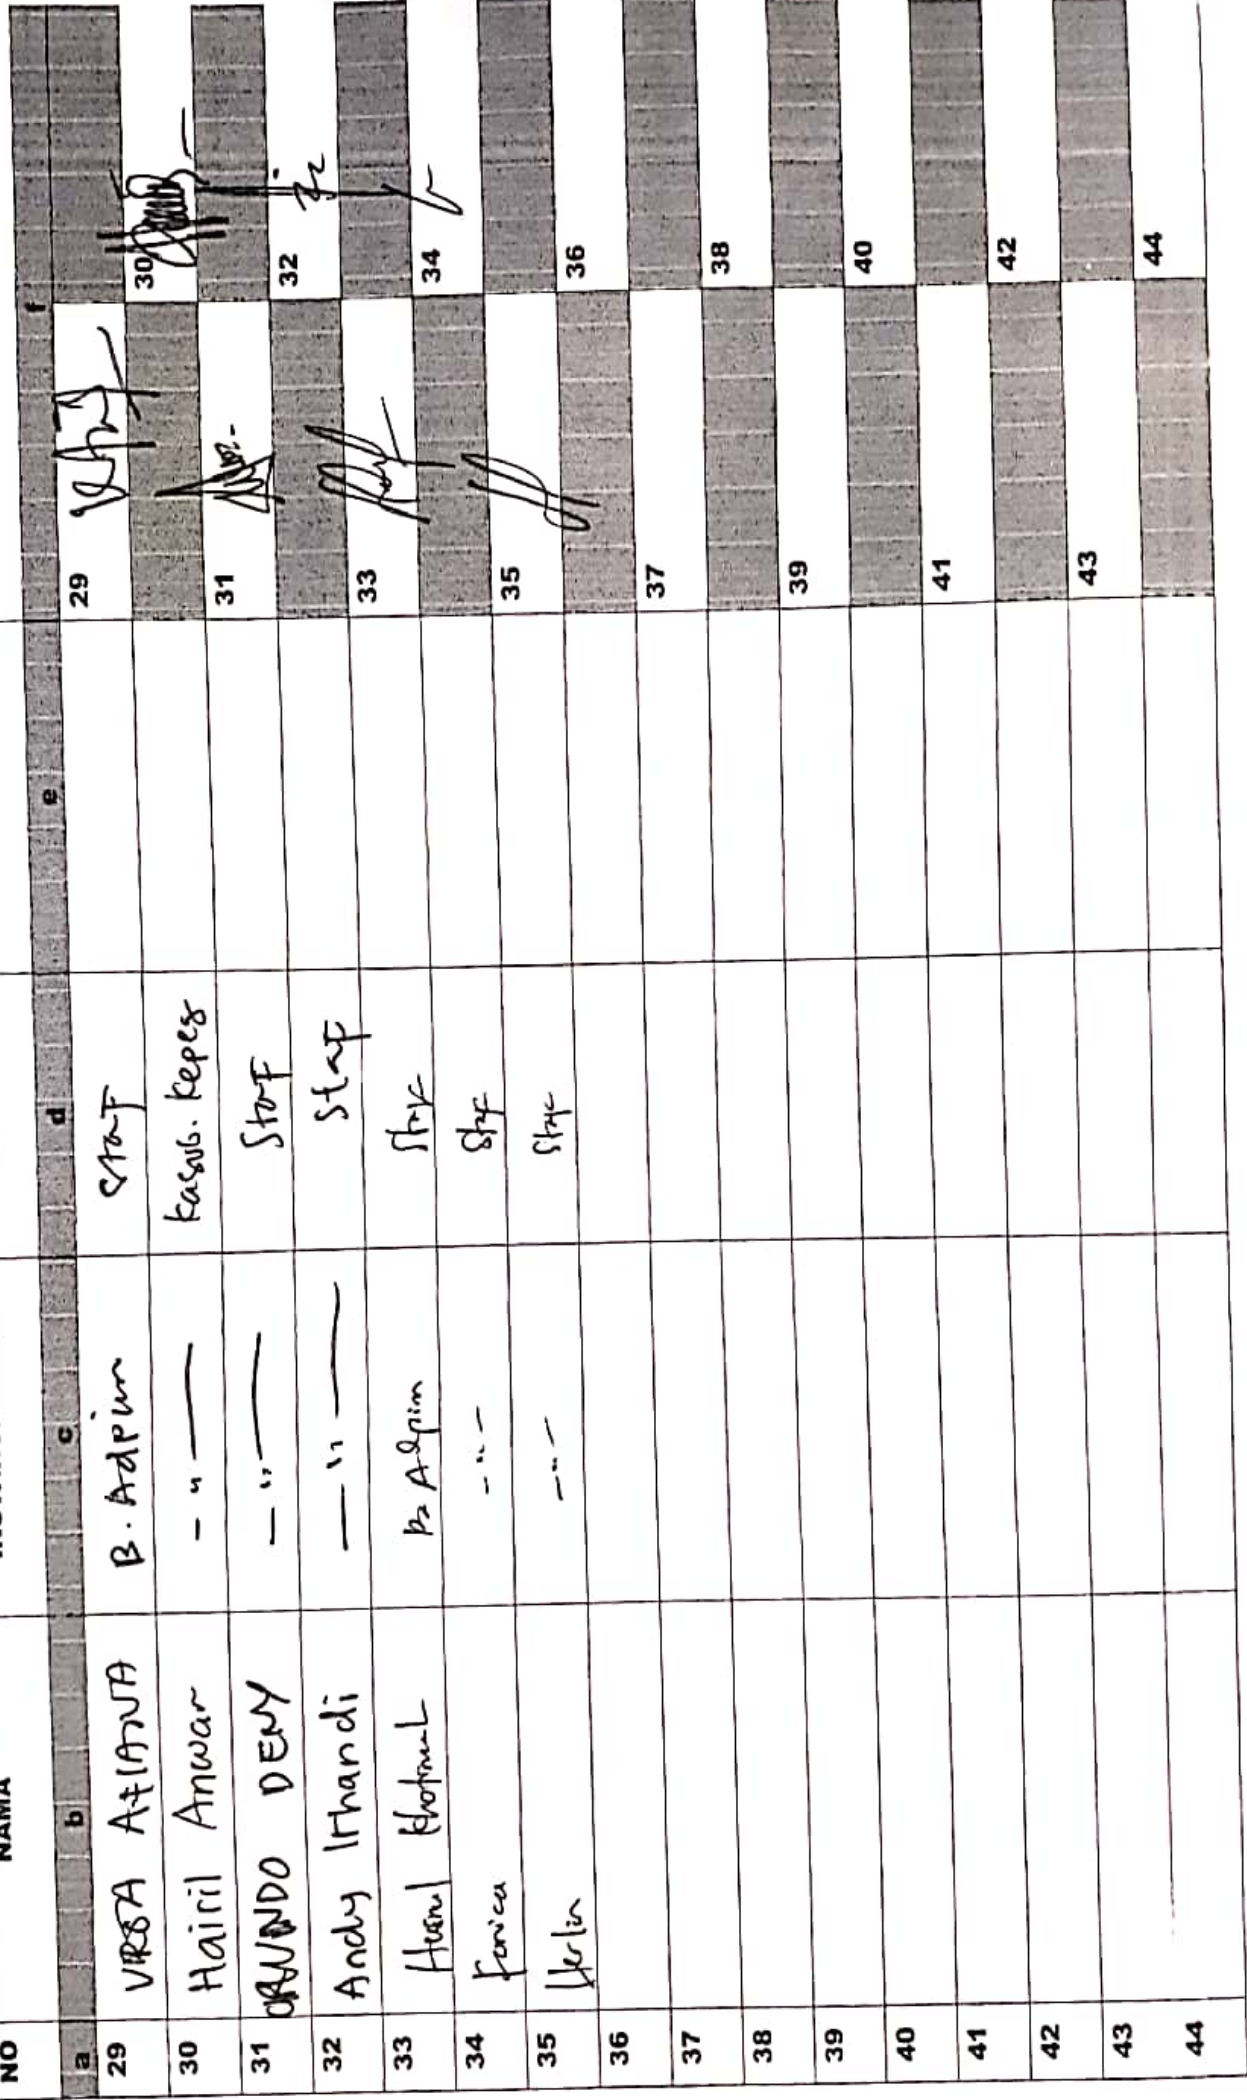 NO NAMA
a b c d e f
29 VIRSA AFIANA B. Adpim Staf 29
30 Hairil Anwar - " — Kasub. Kepeg 30
31 ORLANDO DENY — " — Staf 31
32 Andy Irhandi — " — Staf 32
33 B. Adpim Staf 33
34 Fenica - " - Staf 34
35 Herlin - " - Staf 35
36 36
37 37
38 38
39 39
40 40
41 41
42 42
43 43
44 44